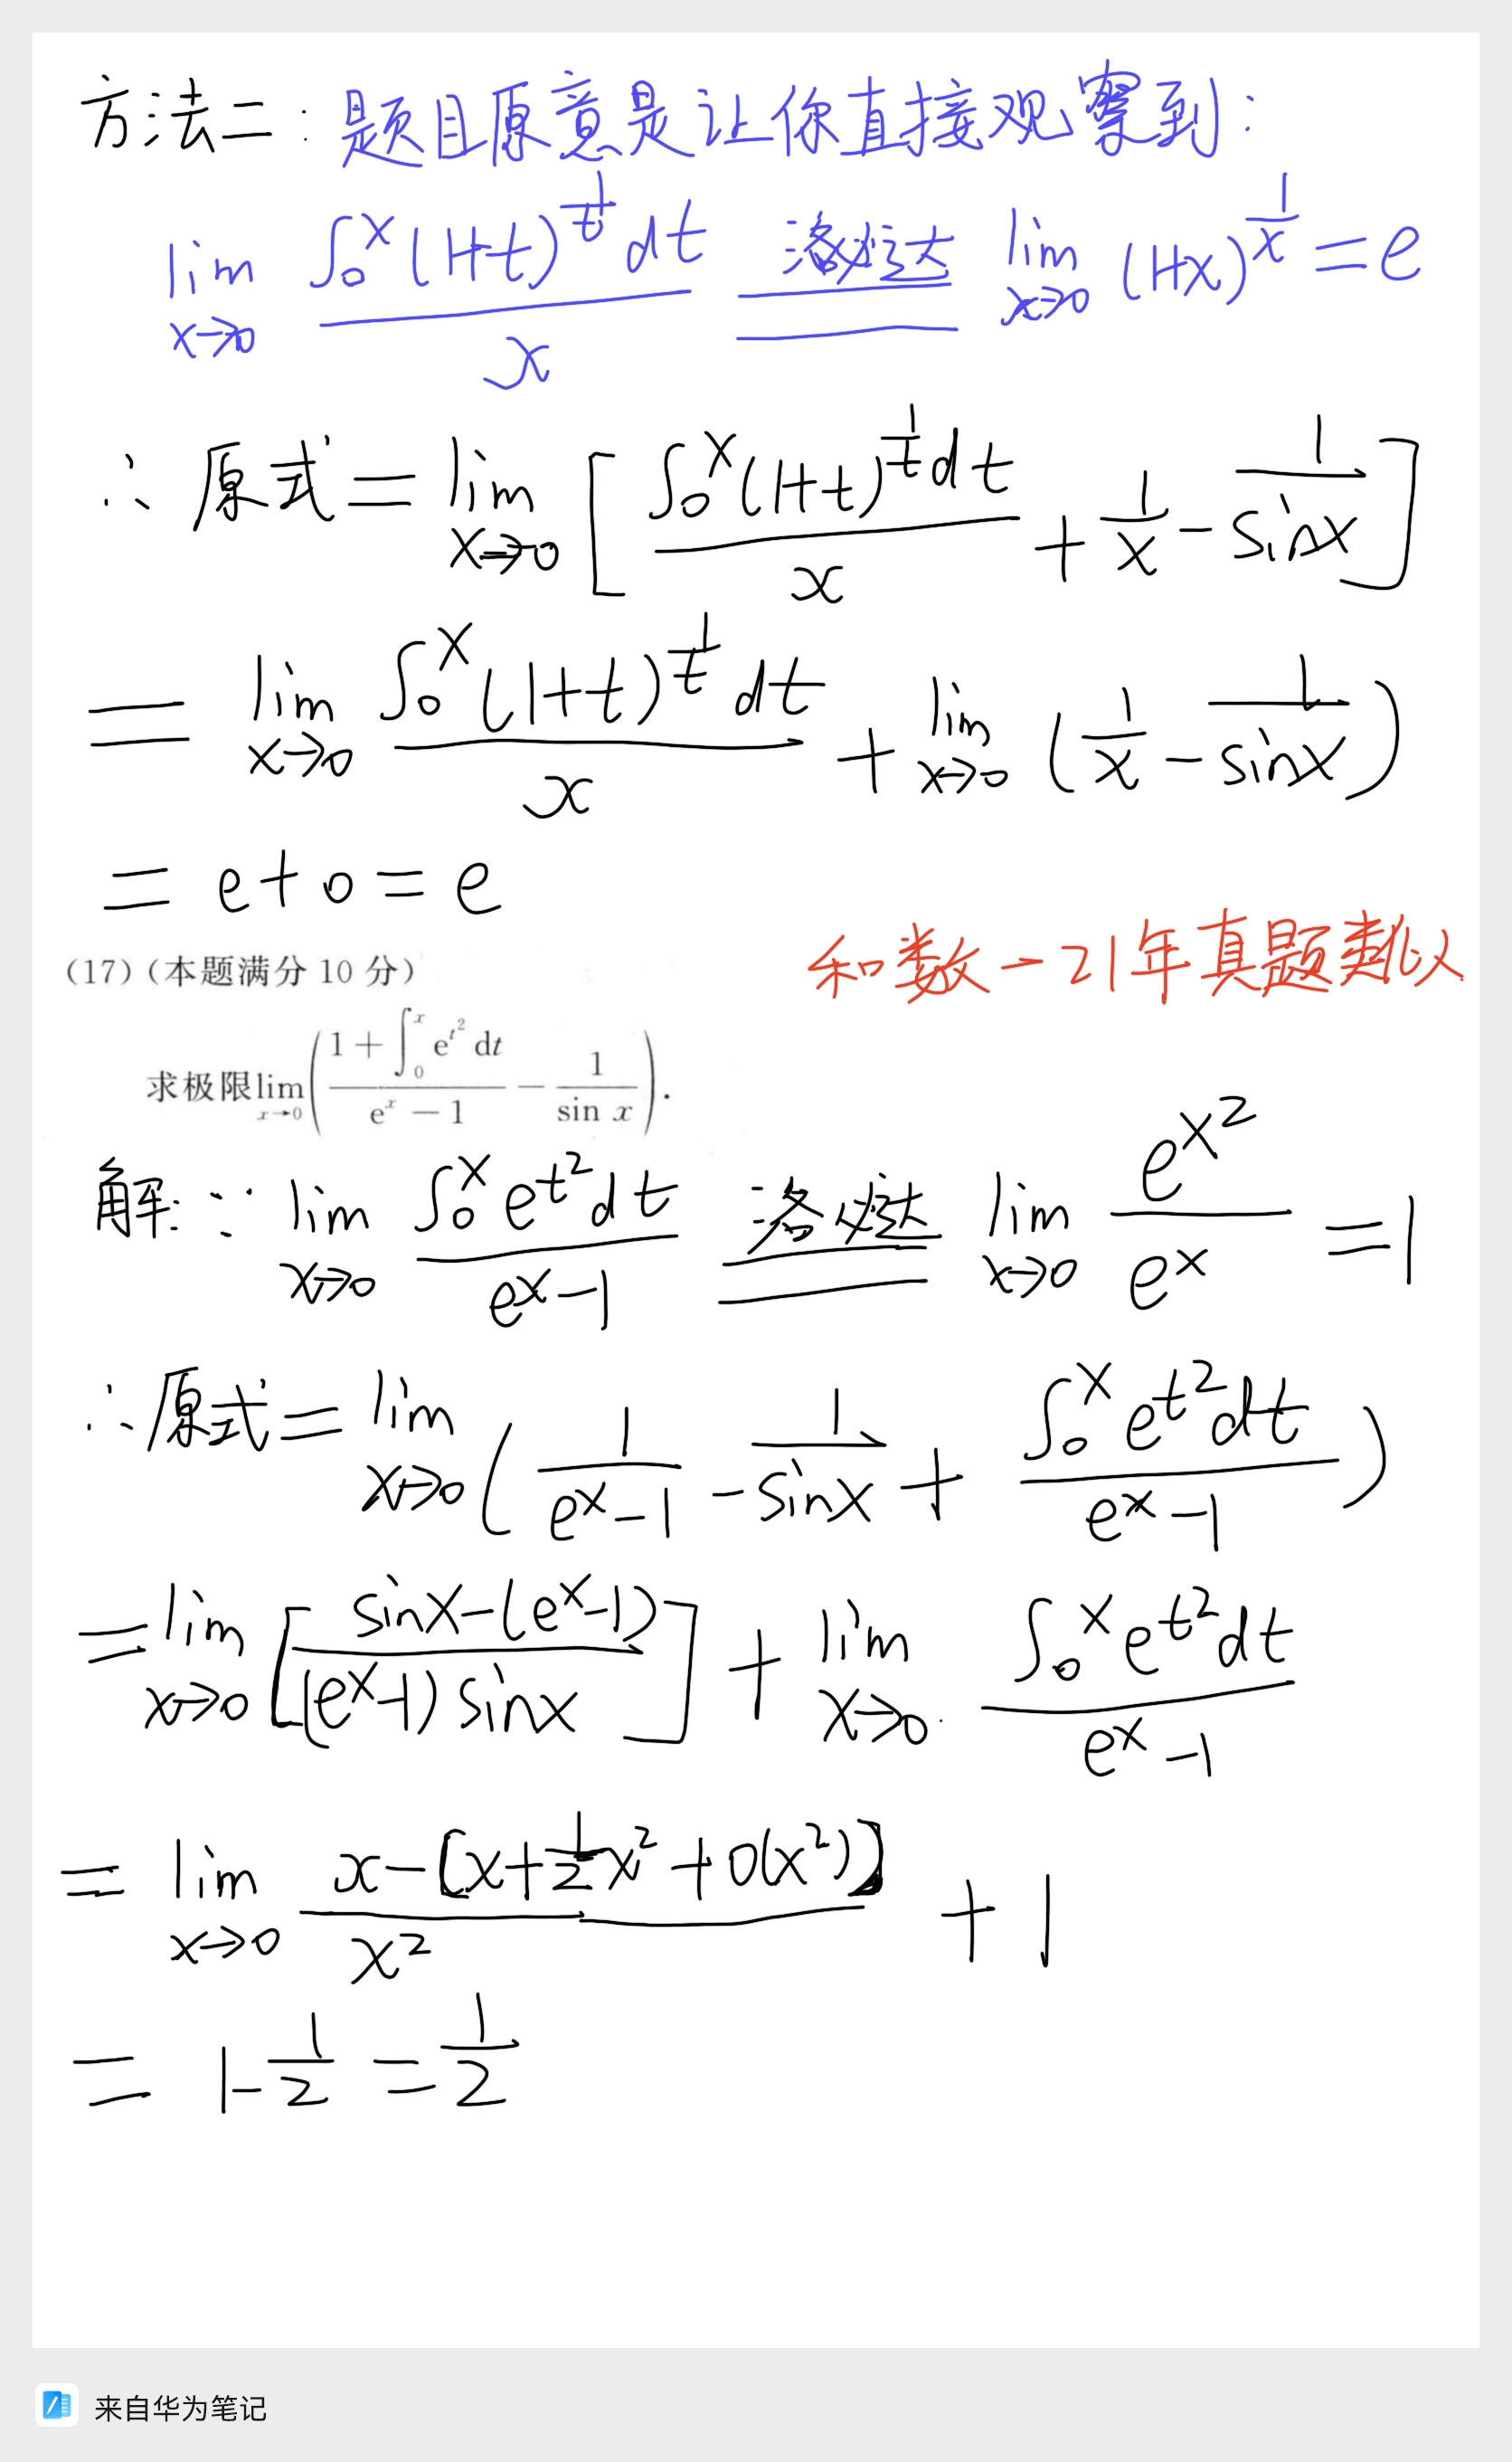 方法二：题目原意是让你直接观察到：
lim_{x→0} ∫₀ˣ(1+t)^{1/t}dt / x 洛必达 lim_{x→0} (1+x)^{1/x} = e
∴原式 = lim_{x→0} [ ∫₀ˣ(1+t)^{1/t}dt / x + 1/x - 1/sinx ]
= lim_{x→0} ∫₀ˣ(1+t)^{1/t}dt / x + lim_{x→0} (1/x - 1/sinx)
= e+0 = e
和数一21年真题类似
(17)(本题满分 10 分)
求极限 lim_{x→0} ( (1 + ∫₀ˣ e^{t²} dt) / (eˣ - 1) - 1/sin x ).
解:∵ lim_{x→0} ∫₀ˣ e^{t²}dt / (eˣ-1) 洛必达 lim_{x→0} e^{x²} / eˣ = 1
∴原式 = lim_{x→0} ( 1/(eˣ-1) - 1/sinx + ∫₀ˣ e^{t²}dt / (eˣ-1) )
= lim_{x→0} [ (sinx-(eˣ-1)) / ((eˣ-1)sinx) ] + lim_{x→0} ∫₀ˣ e^{t²}dt / (eˣ-1)
= lim_{x→0} (x-[x+½x²+o(x²)]) / x² + 1
= 1-1/2 = 1/2
来自华为笔记